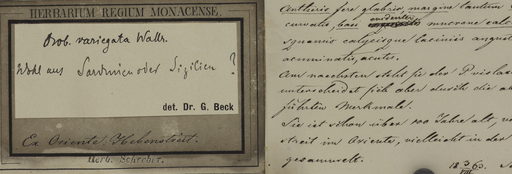 HERBARIUM REGIUM MONACENSE.
Orob. variegata Wallr.
Wohl aus Sardinien oder Sizilien ?
det. Dr. G. Beck
Ex Oriente. Hebenstreit.
Herb. Schreber.
Antheris fere glabris, margine tantum
curvatis, basi evidenter mucrone
squamis calycisque laciniis
acuminatis, acutis.
Am naechsten steht sie der
unterscheidet sich aber durch die
führten Merkmale.
Sie ist schon über 100 Jahre alt,
streit im Oriente, vielleicht in der
gesammelt.